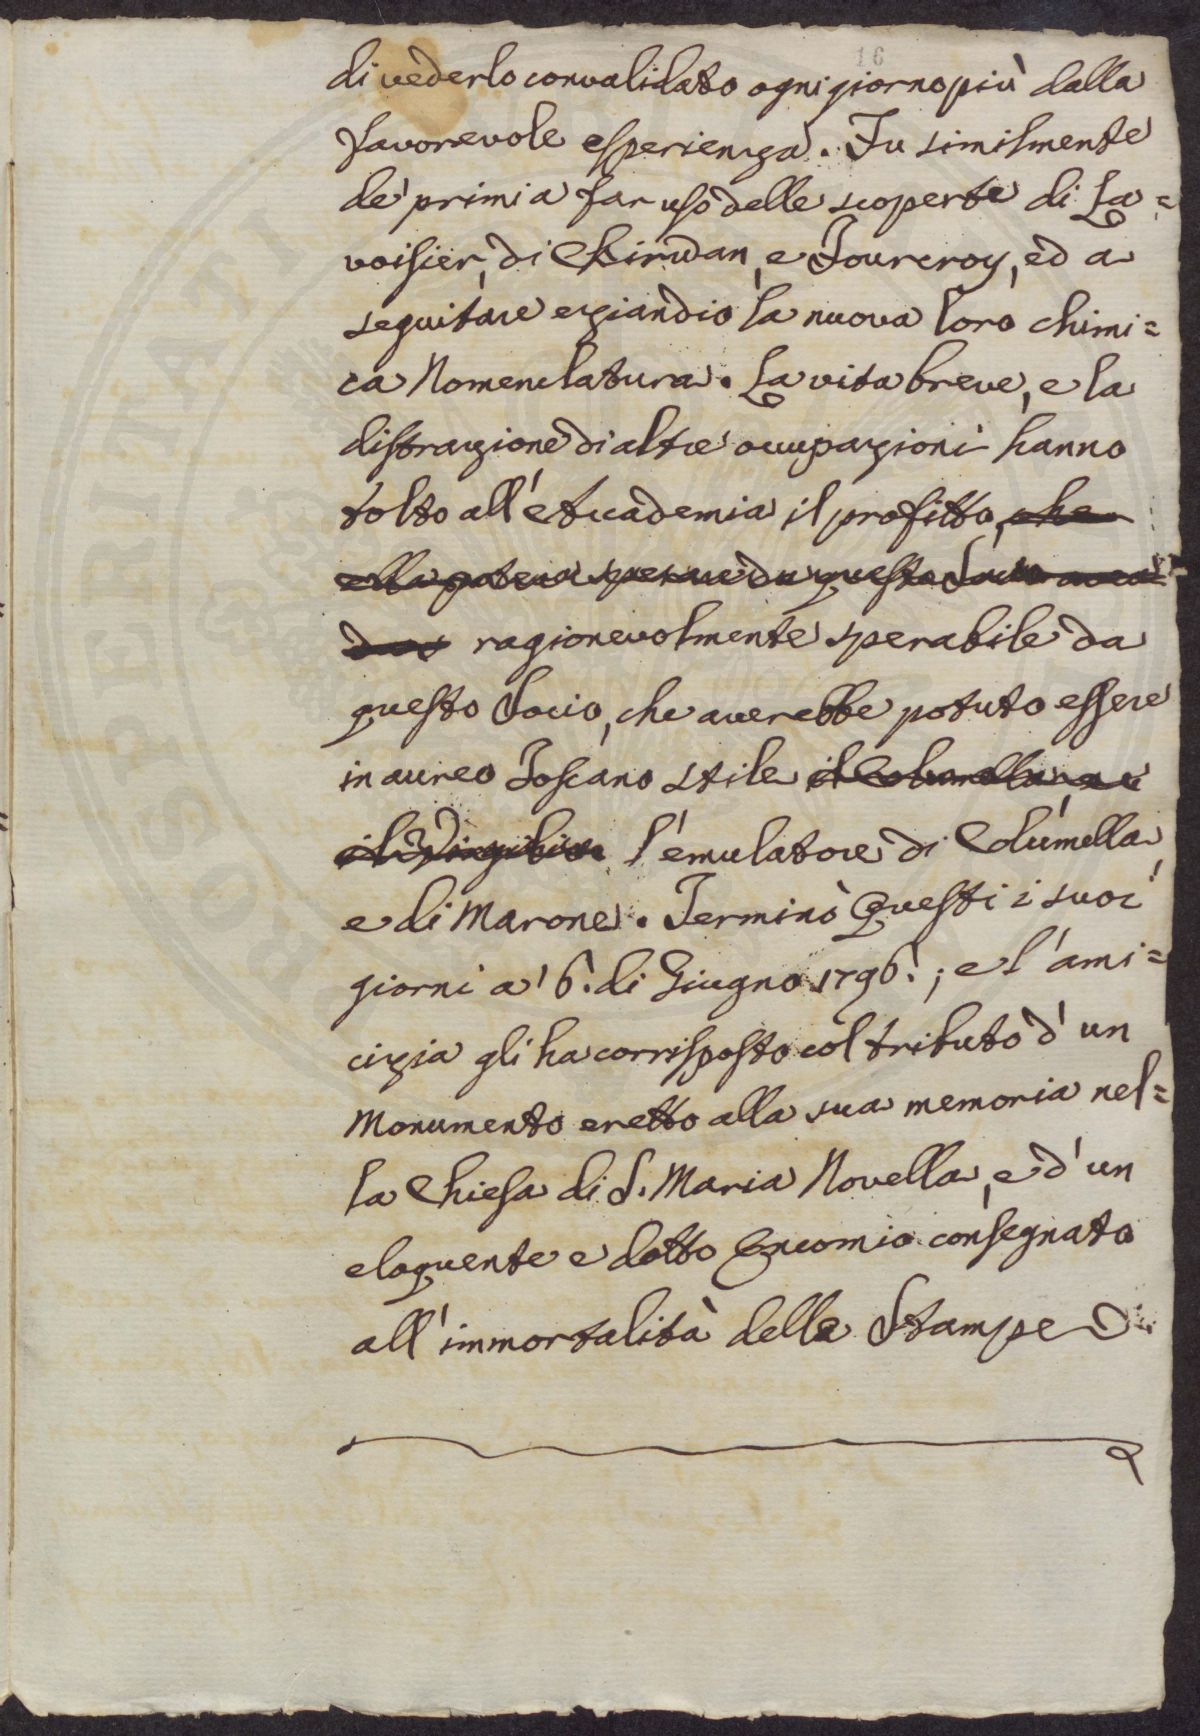 16
di vederlo convalidato ogni giorno più dalla
favorevole esperienza. Fu similmente
de' primi a far uso delle scoperte di La=
voisier, di Chirwan, e Fourcroy, ed a
seguitare eziandio la nuova loro chimi=
ca Nomenclatura. La vita breve, e la
distrazione di altre occupazioni hanno
tolto all'Accademia il profitto, che
ella poteva sperare da questo Socio
ragionevolmente sperabile da
questo Socio, che averebbe potuto essere
in aureo Toscano stile il Columella, e
il Virgilio l'emulatore di Columella,
e di Marone. Terminò Questi i suoi
giorni a' 6. di Giugno 1796.; e l'ami=
cizia gli ha corrisposto col tributo d'un
Monumento eretto alla sua memoria nel=
la Chiesa di S. Maria Novella, e d'un
eloquente e dotto Encomio consegnato
all'immortalità delle Stampe